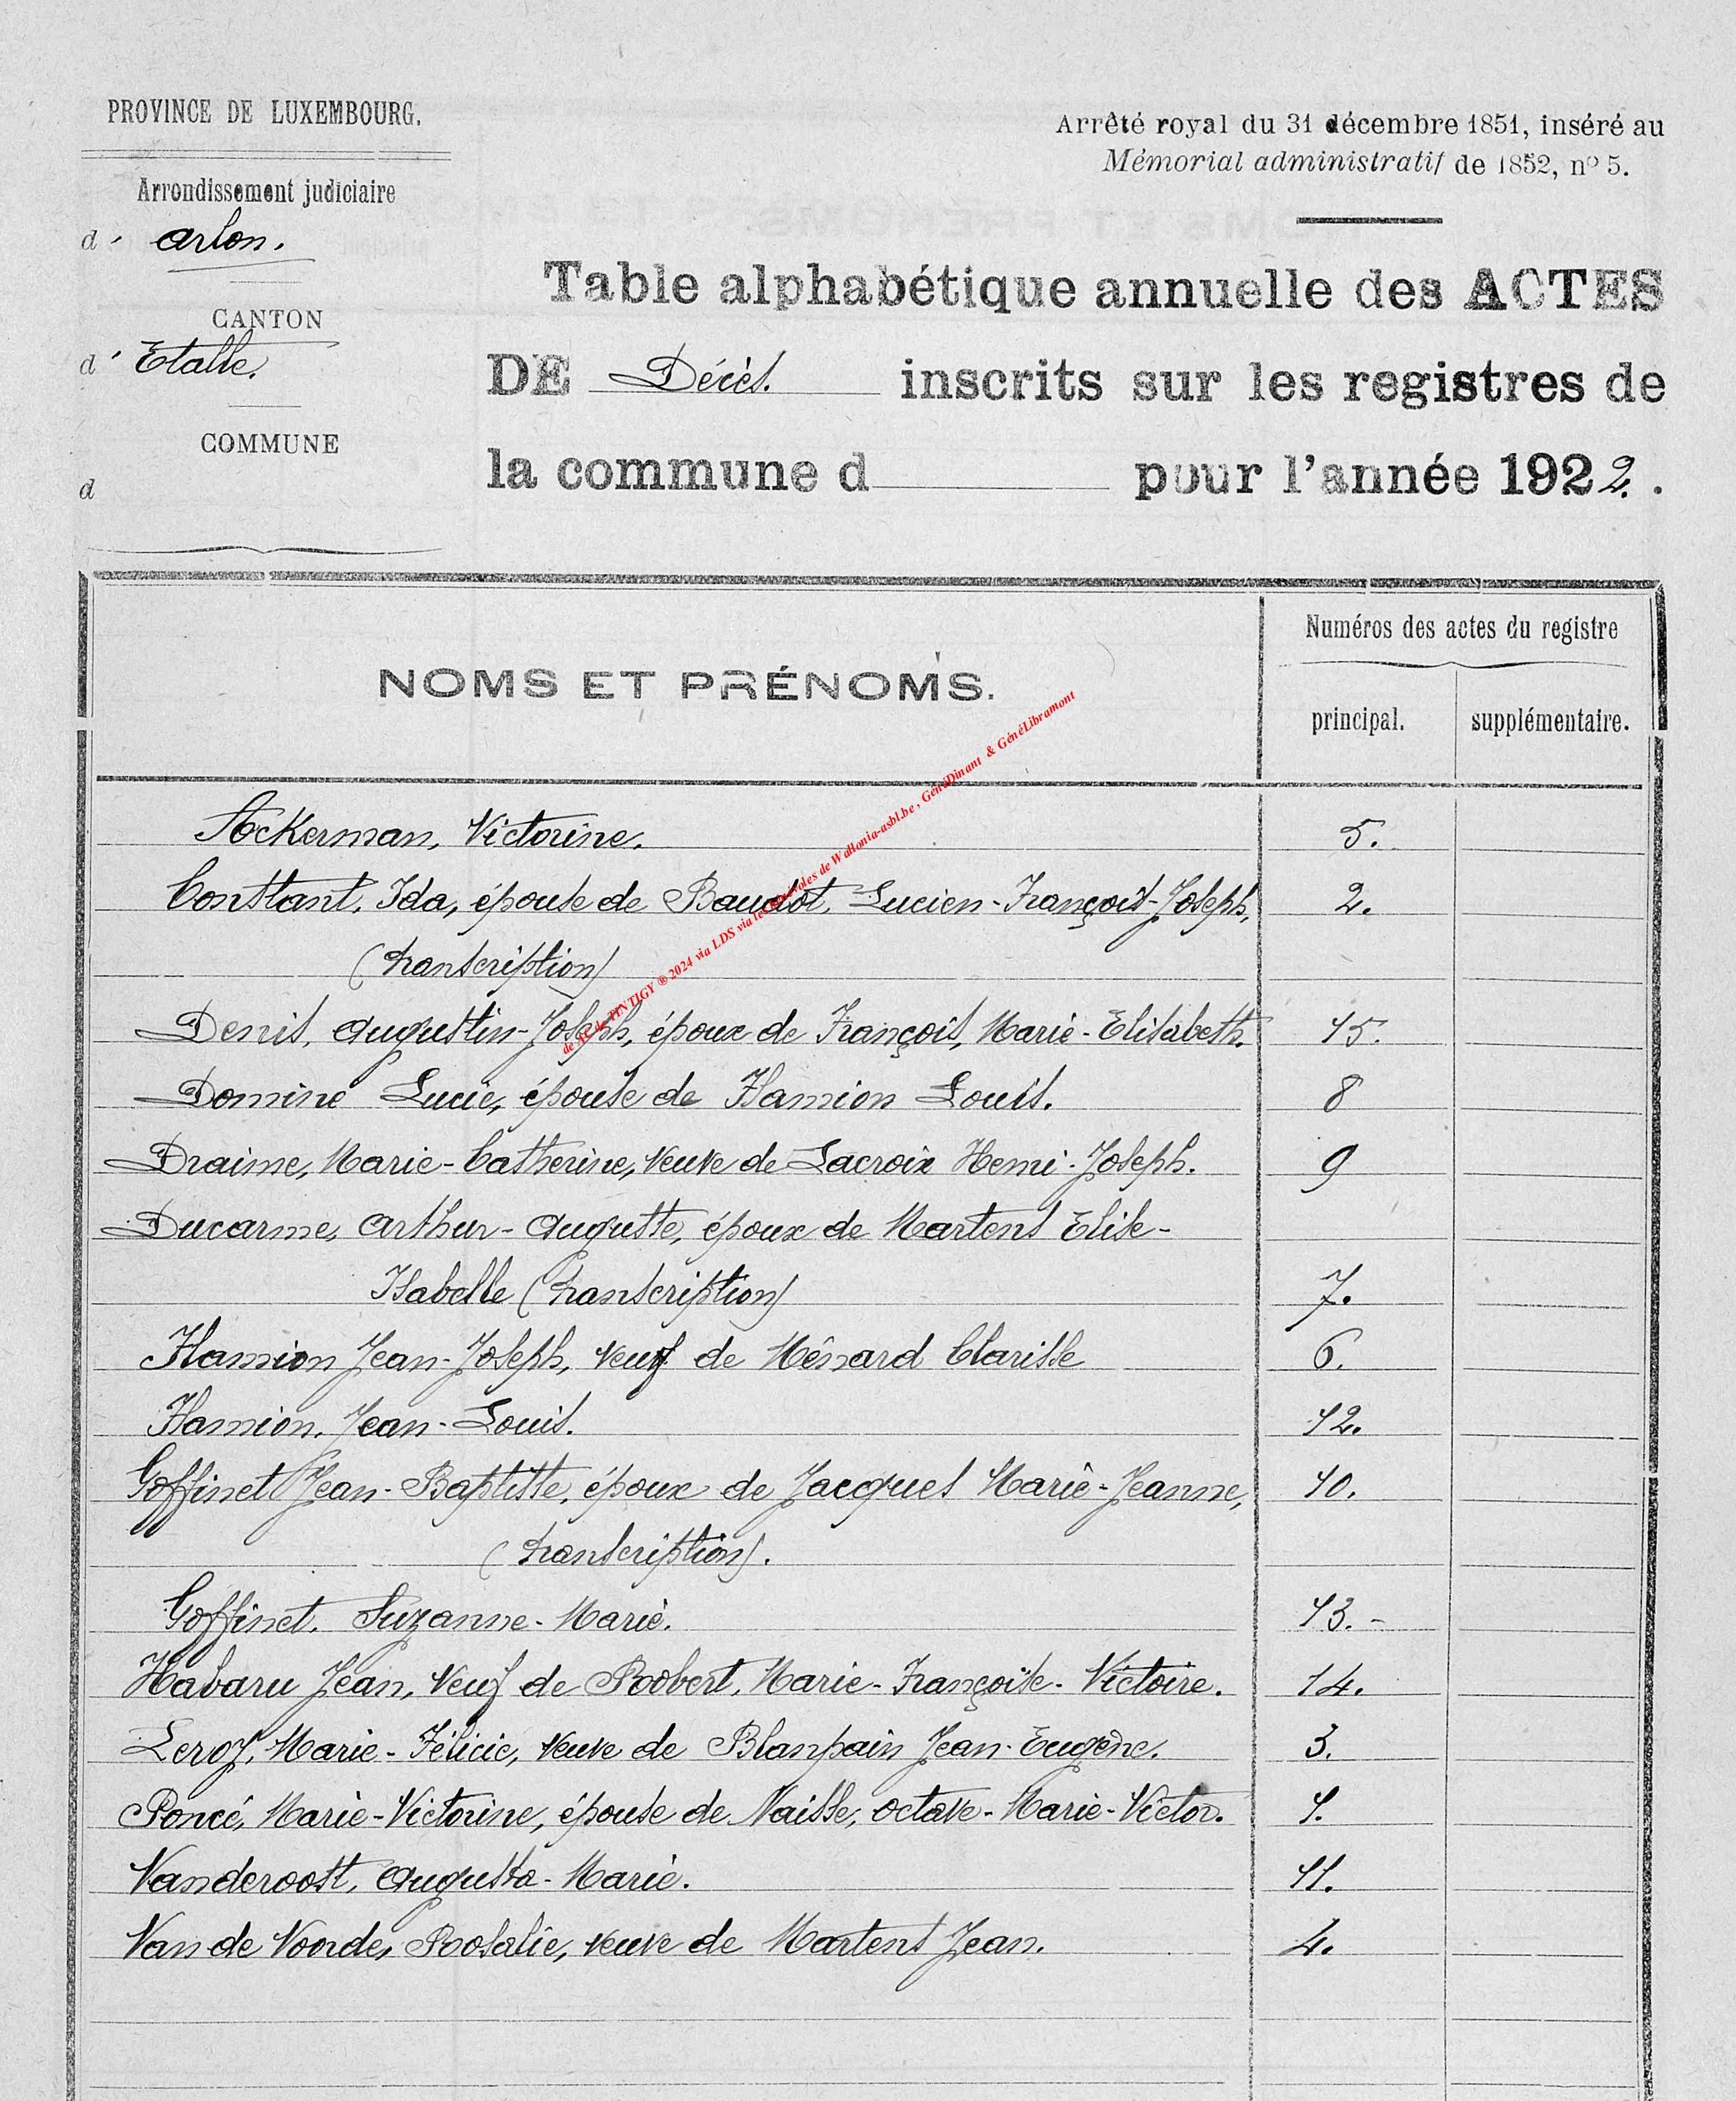 PROVINCE DE LUXEMBOURG.
Arrondissement judiciaire
d' Arlon.
CANTON
d' Etalle.
COMMUNE
d
Arrêté royal du 31 décembre 1851, inséré au
Mémorial administratif de 1852, nº 5.
Table alphabétique annuelle des ACTES
DE Décès. inscrits sur les registres de
la commune d pour l'année 1922.
NOMS ET PRÉNOMS.
Numéros des actes du registre
principal. supplémentaire.
Ackerman, Victorine. 5.
Constant, Ida, épouse de Baudot, Lucien-François-Joseph, 2.
(transcription)
Denis, Augustin-Joseph, époux de François, Marie-Elisabeth. 15.
Domine Lucie, épouse de Hamion Louis. 8
Draime, Marie-Catherine, veuve de Lacroix Henri-Joseph. 9
Ducarme, Arthur-Auguste, époux de Martens Elise-
Isabelle (transcription) 7.
Hamion Jean-Joseph, veuf de Ménard Clarisse 6.
Hamion, Jean-Louis. 12.
Goffinet Jean-Baptiste, époux de Jacques Marie-Jeanne, 10.
(transcription).
Goffinet, Suzanne-Marie. 13.-
Habaru Jean, veuf de Robert, Marie-Françoise-Victoire. 14.
Leroy, Marie-Félicie, veuve de Blanpain Jean-Eugène. 3.
Poncé, Marie-Victorine, épouse de Naisse, Octave-Marie-Victor. 1.
Vanderoost, Augusta-Marie. 11.
Van de Voorde, Rosalie, veuve de Martens Jean. 4.
de AC de TINTIGY ® 2024 via LDS via les bénévoles de Wallonia-asbl.be, GénéDinant & GénéLibramont